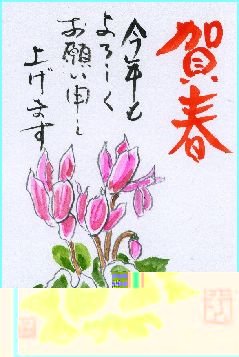 賀春
今年も
よろしく
お願い申し
上げます